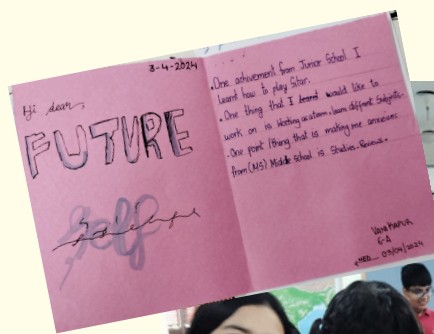 3-4-2024
Hi dear,
FUTURE
Self
• One achivement from Junior School I
Learnt how to play Gitar.
• One thing that I learnt would like to
work on is
• One point/thing that is making me anxcioes
from (MS) Middle school is Studies. Reveiw.
Vani Kapur
6-A
WED 03/04/2024